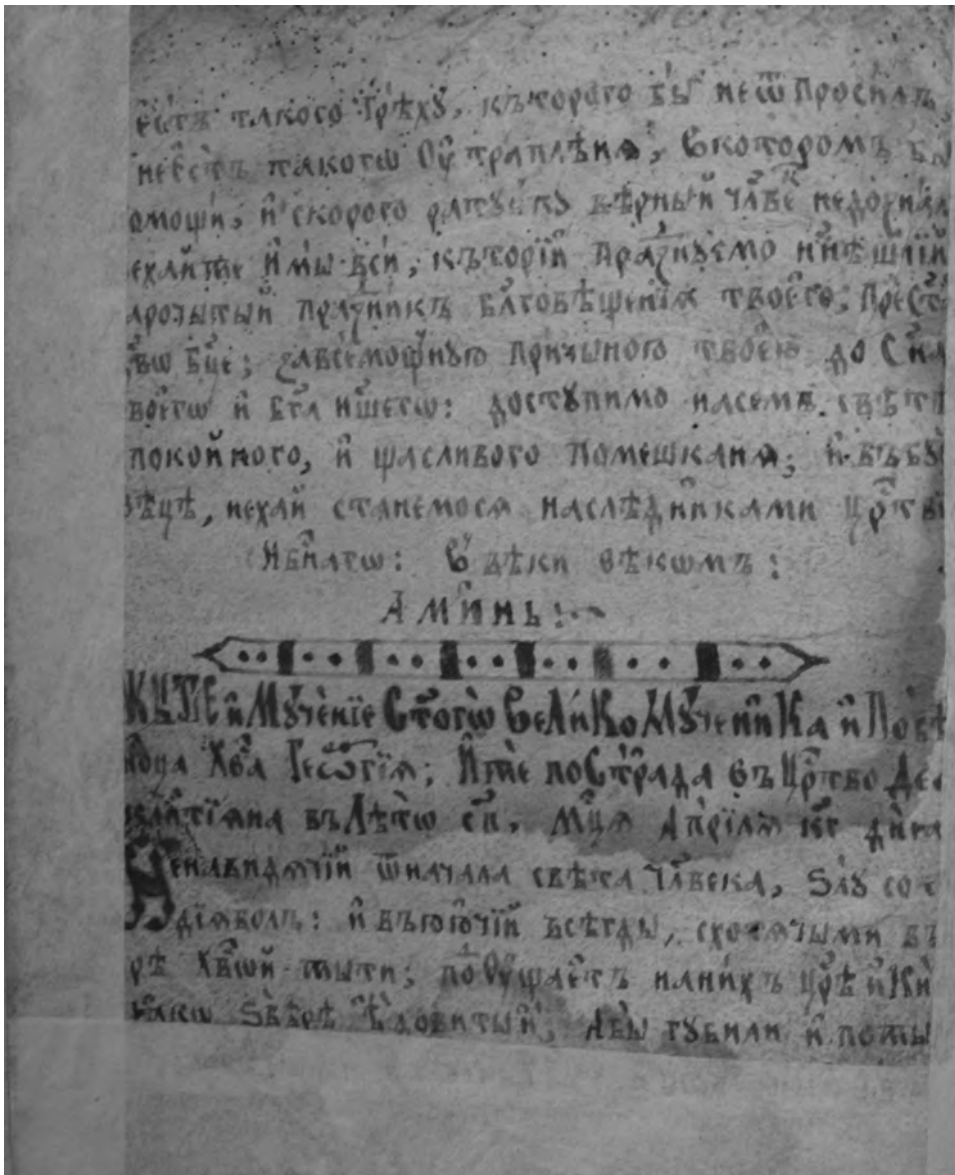 єстъ такого грѣху, къторого бы неѿпросилъ,
нѣестъ такогѡ Оутрапленѧ, Вкоторомъ бы
омощи, и скорого ратунку вѣрный члвекъ недознал
ехайже и мы вси, къторїи празнуемо нн҃ѣшнїй
арочытый празникъ бл҃говѣщенїѧ твоего, Прест҃
дв҃ѡ бц҃е; завсемоцную причыною твоею до Сн҃а
воегѡ и бг҃а нш҃егѡ: доступимо насемъ свѣтѣ
покойного, и щасливого помешканѧ; и въбу
вѣцѣ, нехай станемосѧ наслѣдниками црт҃вї
нбн҃агѡ: Въ вѣки вѣкѡмъ:
Аминь:~
Житїе и Мученїе Ст҃огѡ Великомученика и Побѣ
ноца Хв҃а Геѡргїѧ; Иже пострада въ Црт҃во Деѡ
клитїѧна въ лѣтѡ сп҃. Мц҃ѧ Апрїлѧ кг҃ днѧ
Ненавидѧчїй ѿначала свѣта члв҃ека, Ѕлу со
дїѧволъ: и въюючїй всегды, схотѧчыми въ
рѣ Хв҃ой жыти; поОущаетъ нанихъ црѣ и Кн҃
ꙗкѡ Ѕвѣрѣ ѣдовитыи, Абы губили и пожы